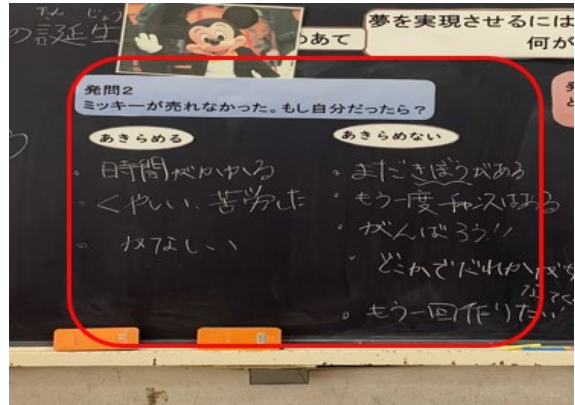 の誕生
たん じょう
めあて
夢を実現させるには
何が
発問2
ミッキーが売れなかった。もし自分だったら？
あきらめる
・時間がかかる
・くやしい、苦労した
・かなしい
あきらめない
・まだきぼうがある
・もう一度チャンスはある
・がんばろう!!
・どこかでだれかが
・もう一回作りたい